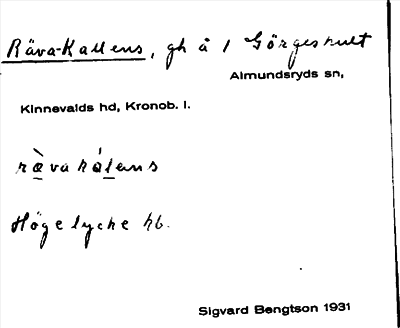 Räva-Kallens, gh å 1 Görgeshult
Almundsryds sn,
Kinnevalds hd, Kronob. l.
ræ̀vakálens
Högelycke hb.
Sigvard Bengtson 1931